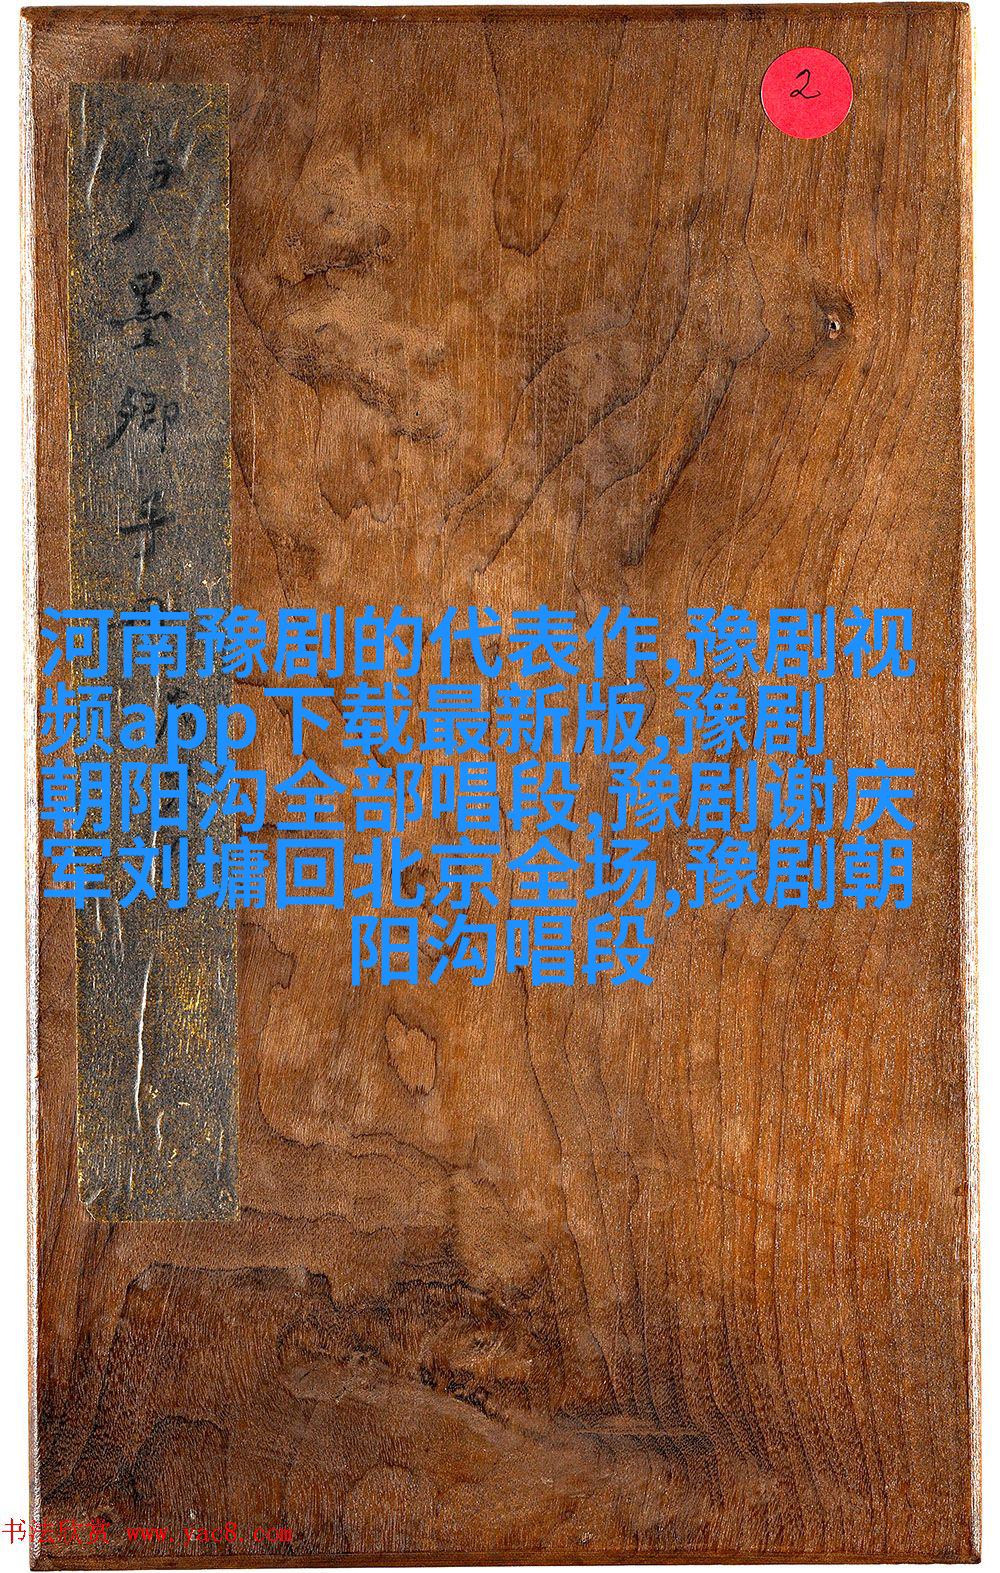 2
墨卿
河南豫剧的代表作,豫剧视
频app下载最新版,豫剧
朝阳沟全部唱段,豫剧谢庆
军刘墉回北京全场,豫剧朝
阳沟唱段
书法欣赏 www.yac8.com